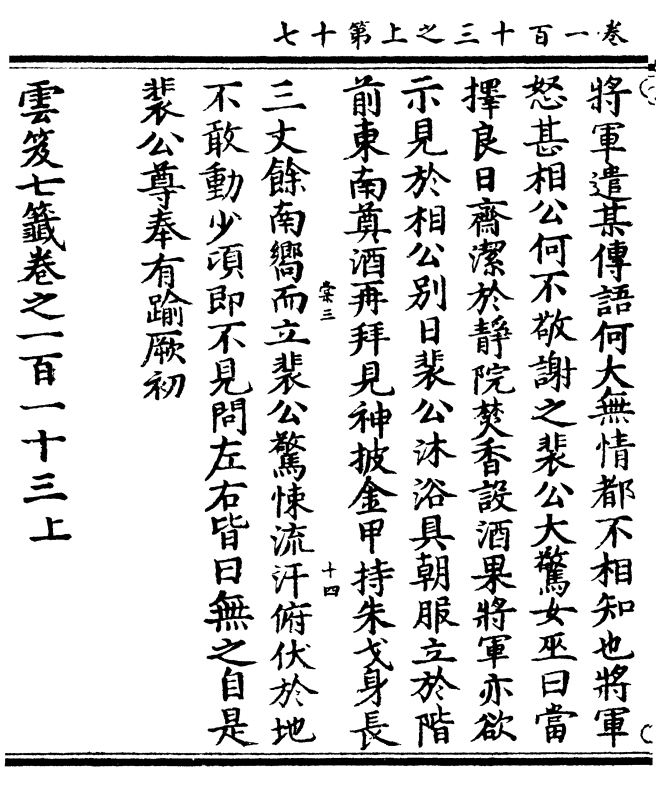 卷一百十三之上第十七
將軍遣某傳語何大無情都不相知也將軍
怒甚相公何不敬謝之裴公大驚女巫曰當
擇良日齋潔於靜院焚香設酒果將軍亦欲
示見於相公別日裴公沐浴具朝服立於階
前東南奠酒再拜見神披金甲持朱戈身長
棠三
十四
三丈餘南嚮而立裴公驚悚流汗俯伏於地
不敢動少頃即不見問左右皆曰無之自是
裴公尊奉有踰厥初
雲笈七籤卷之一百一十三上